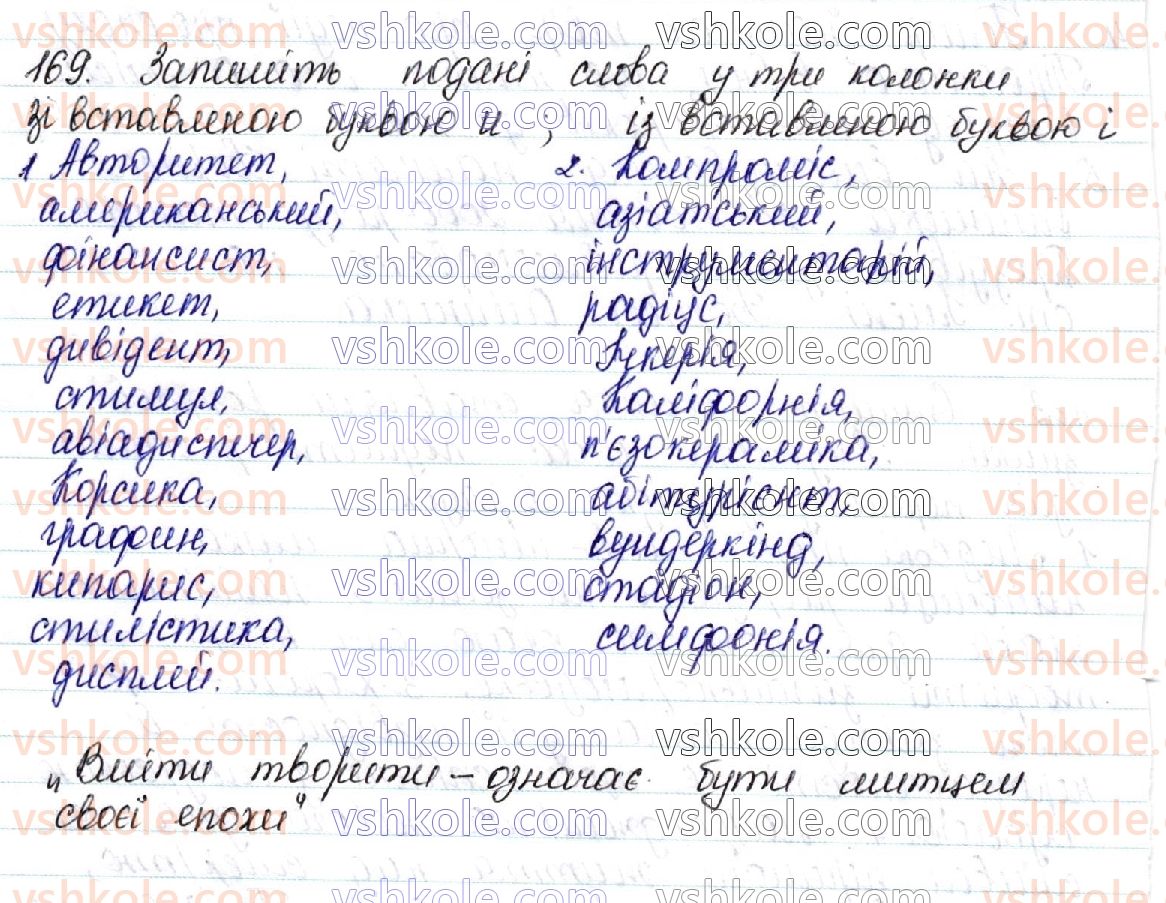 169. Запишіть подані слова у три колонки
зі вставленою буквою и ; із вставленою буквою і
1 Авторитет, 2. Компроміс,
американський, азіатський,
фінансист, інструментарій,
етикет, радіус,
дивідент, Ічкерія,
стимул, Каліфорнія,
авіадиспчер, п'єзокераміка,
Корсика, абітурієнт,
графин, вундеркінд,
кипарис, стадіон,
стилістика, симфонія.
дисплей.
„Вміти творити – означає бути митцем
своєї епохи"
vshkole.com